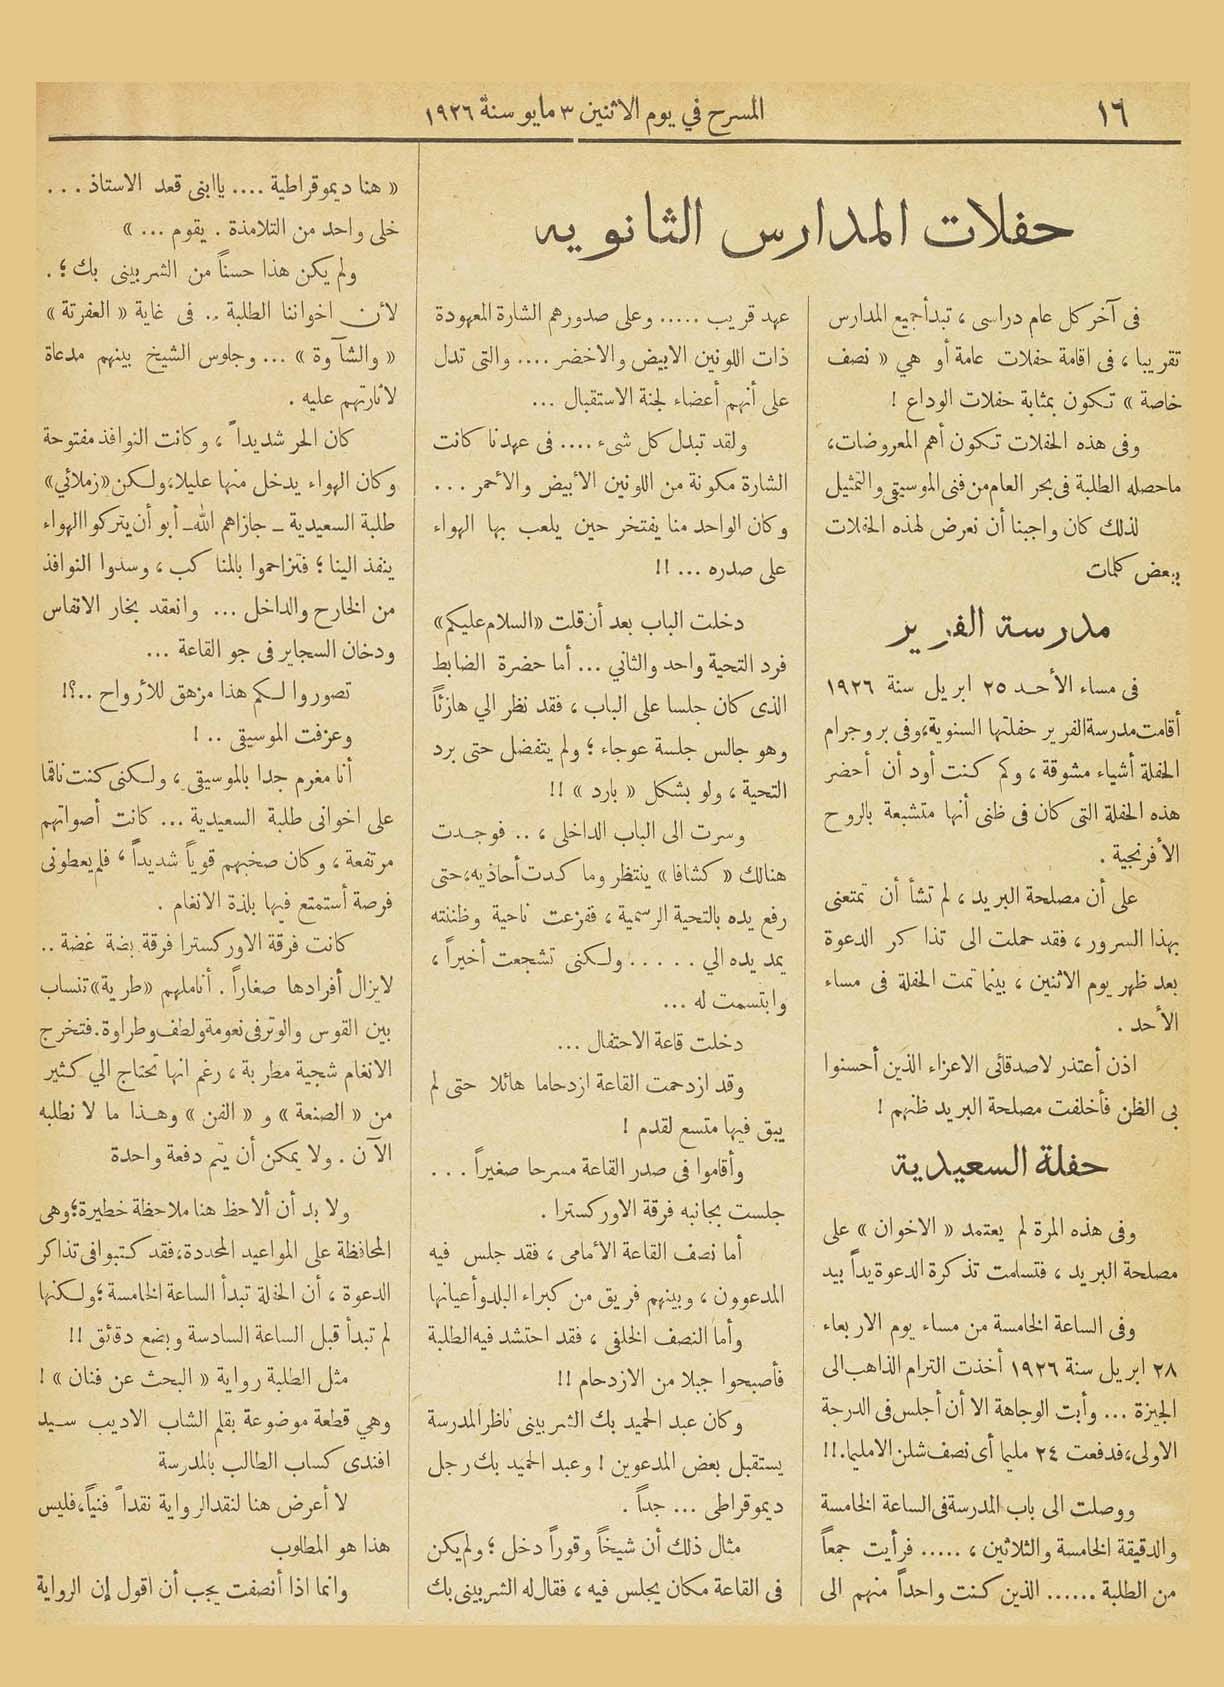 ١٦
المسرح في يوم الاثنين ٣ مايو سنة ١٩٢٦
حفلات المدارس الثانويه
فى آخر كل عام دراسى ، تبدأ جميع المدارس
تقريبا ، فى اقامة حفلات عامة أو هي « نصف
خاصة » تكون بمثابة حفلات الوداع !
وفى هذه الحفلات تكون أهم المعروضات ،
ماحصله الطلبة فى بحر العام من فنى الموسيقى والتمثيل
لذلك كان واجبنا أن نعرض لهذه الحفلات
ببعض كلمات
مدرسة الفرير
فى مساء الأحد ٢٥ ابريل سنة ١٩٢٦
أقامت مدرسة الفرير حفلتها السنوية ، وفى بروجرام
الحفلة أشياء مشوقة ، وكم كنت أود أن أحضر
هذه الحفلة التى كان فى ظنى أنها متشبعة بالروح
الأفرنجية .
على أن مصلحة البريد ، لم تشأ أن تمتعنى
بهذا السرور ، فقد حملت الى تذاكر الدعوة
بعد ظهر يوم الاثنين ، بينما تمت الحفلة فى مساء
الأحد .
اذن أعتذر لاصدقائى الاعزاء الذين أحسنوا
بى الظن فأخلفت مصلحة البريد ظنهم !
حفلة السعيدية
وفى هذه المرة لم يعتمد « الاخوان » على
مصلحة البريد ، فتسلمت تذكرة الدعوة يداً بيد
وفى الساعة الخامسة من مساء يوم الاربعاء
٢٨ ابريل سنة ١٩٢٦ أخذت الترام الذاهب الى
الجيزة ... وأبت الوجاهة الا أن أجلس فى الدرجة
الاولى ، فدفعت ٢٤ مليما أى نصف شلن الامليما .!!
ووصلت الى باب المدرسة فى الساعة الخامسة
والدقيقة الخامسة والثلاثين ، ..... فرأيت جمعاً
من الطلبة ...... الذين كنت واحداً منهم الى
عهد قريب ..... وعلى صدورهم الشارة المعهودة
ذات اللونين الابيض والاخضر .... والتى تدل
على أنهم أعضاء لجنة الاستقبال ...
ولقد تبدل كل شىء .... فى عهدنا كانت
الشارة مكونة من اللونين الأبيض والأحمر ...
وكان الواحد منا يفتخر حين يلعب بها الهواء
على صدره ... !!
دخلت الباب بعد أن قلت « السلام عليكم »
فرد التحية واحد والثاني ... أما حضرة الضابط
الذى كان جلسا على الباب ، فقد نظر الي هازئاً
وهو جالس جلسة عوجاء ؛ ولم يتفضل حتى برد
التحية ، ولو بشكل « بارد » !!
وسرت الى الباب الداخلى ، .. فوجدت
هنالك « كشافا » ينتظر وما كدت أحاذيه ، حتى
رفع يده بالتحية الرسمية ، ففزعت ناحية وظننته
يمد يده الي . . . . . ولكنى تشجعت أخيراً ،
وابتسمت له ...
دخلت قاعة الاحتفال ...
وقد ازدحمت القاعة ازدحاما هائلا حتى لم
يبق فيها متسع لقدم !
وأقاموا فى صدر القاعة مسرحا صغيراً ...
جلست بجانبه فرقة الاوركسترا .
أما نصف القاعة الأمامى ، فقد جلس فيه
المدعوون ، وبينهم فريق من كبراء البلد وأعيانها
وأما النصف الخلفى ، فقد احتشد فيه الطلبة
فأصبحوا جبلا من الازدحام !!
وكان عبد الحميد بك الشربينى ناظر المدرسة
يستقبل بعض المدعوين ! وعبد الحميد بك رجل
ديموقراطى ... جداً .
مثال ذلك أن شيخاً وقوراً دخل ؛ ولم يكن
فى القاعة مكان يجلس فيه ، فقال له الشربينى بك
« هنا ديموقراطية .... ياابنى قعد الاستاذ ...
خلى واحد من التلامذة . يقوم ... »
ولم يكن هذا حسناً من الشربينى بك ؛ .
لأن اخواننا الطلبة .. فى غاية « العفرتة »
« والشآوة » ... وجلوس الشيخ بينهم مدعاة
لاثارتهم عليه .
كان الحر شديداً ، وكانت النوافذ مفتوحة
وكان الهواء يدخل منها عليلا ، ولكن « زملائي »
طلبة السعيدية ــ جازاهم الله ــ أبو أن يتركوا الهواء
ينفذ الينا ؛ فتزاحموا بالمناكب ، وسدوا النوافذ
من الخارح والداخل ... وانعقد بخار الانفاس
ودخان السجاير فى جو القاعة ...
تصوروا لكم هذا مزهق للأرواح ..؟!
وعزفت الموسيقى .. !
أنا مغرم جدا بالموسيقى ، ولكنى كنت ناقما
على اخوانى طلبة السعيدية ... كانت أصواتهم
مرتفعة ، وكان صخبهم قوياً شديداً ، فلم يعطونى
فرصة أستمتع فيها بلذة الانغام .
كانت فرقة الاوركسترا فرقة بضة غضة ..
لايزال أفرادها صغاراً . أناملهم « طرية » تنساب
بين القوس والوتر فى نعومة ولطف وطراوة . فتخرج
الانغام شجية مطربة ، رغم انها تحتاج الي كثير
من « الصنعة » و « الفن » وهذا ما لا نطلبه
الآن . ولا يمكن أن يتم دفعة واحدة
ولا بد أن ألاحظ هنا ملاحظة خطيرة ؛ وهى
المحافظة على المواعيد المحددة ، فقد كتبوا فى تذاكر
الدعوة ، أن الحفلة تبدأ الساعة الخامسة ؛ ولكنها
لم تبدأ قبل الساعة السادسة وبضع دقائق !!
مثل الطلبة رواية « البحث عن فنان » !
وهي قطعة موضوعة بقلم الشاب الاديب سيد
افندى كساب الطالب بالمدرسة
لا أعرض هنا لنقد الرواية نقداً فنياً ، فليس
هذا هو المطلوب
وانما اذا أنصفت يجب أن أقول إن الرواية